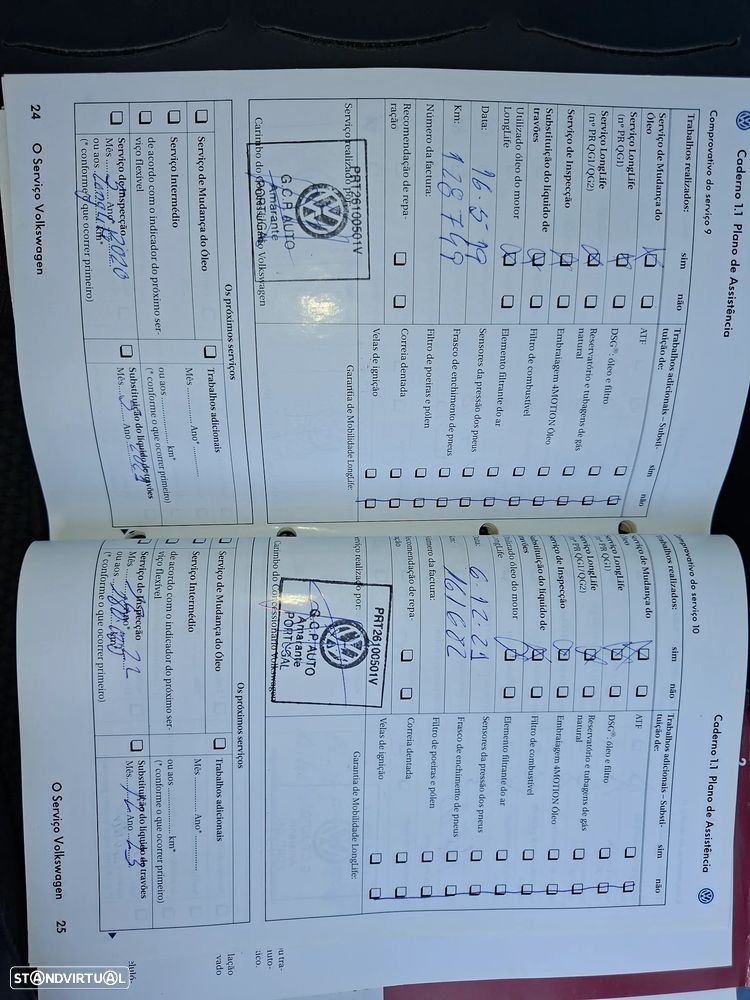 Caderno 1.1 Plano de Assistência
Comprovativo do serviço 9
Trabalhos realizados: sim não
Serviço de Mudança do Óleo
Serviço LongLife
(nº PR QG1)
Serviço LongLife
(nº PR QG1/QG2)
Serviço de Inspecção
Substituição do líquido de
travões
Utilizado óleo do motor
LongLife
Data: 16-5-19
Km: 128749
Número da factura:
Recomendação de repa-
ração
Serviço realizado por:
PRT26100501V
G.C.P. AUTO
Amarante
PORTUGAL
Carimbo do Concessionário Volkswagen
Trabalhos adicionais – Substi-
tuição de: sim não
ATF
DSG®: óleo e filtro
Reservatório e tubagens de gás
natural
Embraiagem 4MOTION Óleo
Filtro de combustível
Elemento filtrante do ar
Sensores da pressão dos pneus
Frasco de enchimento de pneus
Filtro de poeiras e pólen
Correia dentada
Velas de ignição
Garantia de Mobilidade LongLife:
Os próximos serviços
Serviço de Mudança do Óleo
Serviço Intermédio
de acordo com o indicador do próximo ser-
viço flexível
Serviço de Inspecção
Mês Ano 2020
ou aos km*
(* conforme o que ocorrer primeiro)
Trabalhos adicionais
Mês Ano*
ou aos km*
(* conforme o que ocorrer primeiro)
Substituição do líquido de travões
Mês 5 Ano 2021
24 O Serviço Volkswagen
Caderno 1.1 Plano de Assistência
omprovativo do serviço 10
rabalhos realizados: sim não
erviço de Mudança do
leo
erviço LongLife
º PR QG1)
erviço LongLife
º PR QG1/QG2)
erviço de Inspecção
ubstituição do líquido de
avões
tilizado óleo do motor
ongLife
ata: 6-12-21
m: 161682
úmero da factura:
ecomendação de repa-
ção
erviço realizado por:
PRT26100501V
G.C.P. AUTO
Amarante
PORTUGAL
Carimbo do Concessionário Volkswagen
Trabalhos adicionais – Substi-
tuição de: sim não
ATF
DSG®: óleo e filtro
Reservatório e tubagens de gás
natural
Embraiagem 4MOTION Óleo
Filtro de combustível
Elemento filtrante do ar
Sensores da pressão dos pneus
Frasco de enchimento de pneus
Filtro de poeiras e pólen
Correia dentada
Velas de ignição
Garantia de Mobilidade LongLife:
Os próximos serviços
Serviço de Mudança do Óleo
Serviço Intermédio
de acordo com o indicador do próximo ser-
viço flexível
Serviço de Inspecção
Mês Ano 22
ou aos km*
(* conforme o que ocorrer primeiro)
Trabalhos adicionais
Mês Ano*
ou aos km*
(* conforme o que ocorrer primeiro)
Substituição do líquido de travões
Mês 12 Ano 23
O Serviço Volkswagen 25
lação
vado
STANDVIRTUAL